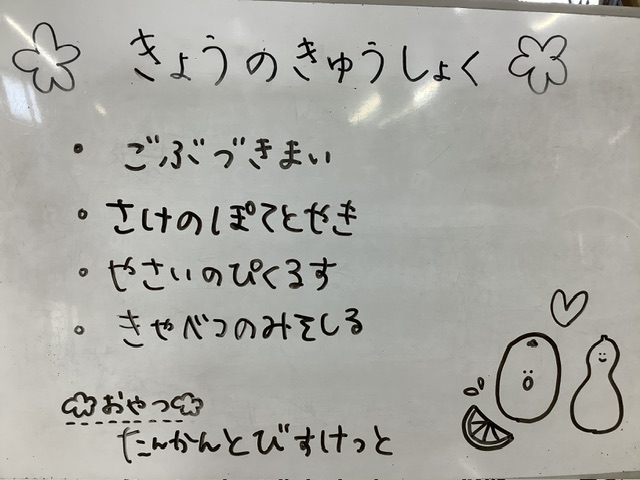 きょうのきゅうしょく
・ごぶづきまい
・さけのぽてとやき
・やさいのぴくるす
・きゃべつのみそしる
おやつ
たんかんとびすけっと